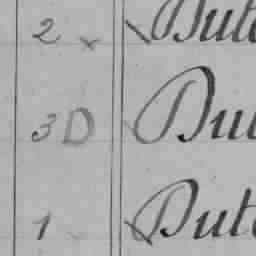 2 Dut
3 D Du
1 Dut